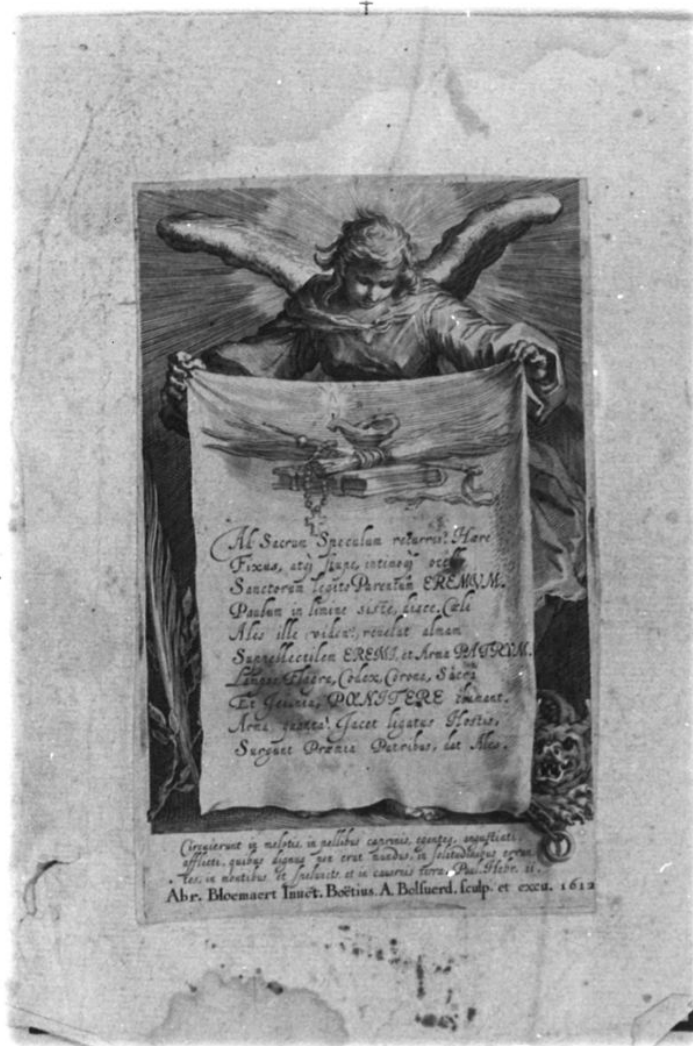 Ad Sacrum Speculum recurris? Hære
Fixus, atq; stupe, intimoq; ocello
Sanctorum legito Parentum EREMUM.
Paulum in limine siste, disce, Cæli
Ales ille viden', revelat almam
Suppellectilem EREMI, et Arma PATRUM.
Flagra, Codex, Corona, Sacra
Et Jejunia, POENITERE clamant.
Arma quanta! Jacet ligatus Hostis,
Surgunt Præmia Patribus, dat Ales.
Circuierunt in melotis, in pellibus caprinis, egentes, angustiati,
afflicti, quibus dignus non erat mundus, in solitudinibus erran
tes, in montibus et speluncis, et in cavernis terræ. Paul. Hebr. 11.
Abr. Bloemaert Invēt. Boëtius. A. Bolsuerd. sculp. et excu. 1612